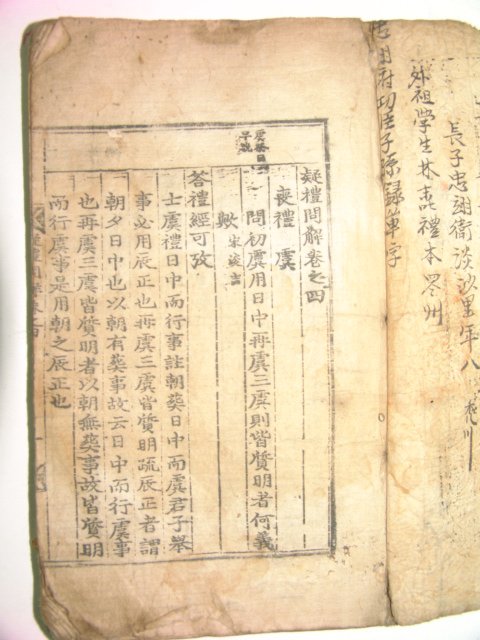 長子忠翊衛談沙里年八
外祖學生林嘉禮本
忠翊府功臣子孫錄單字
疑禮問解卷之四
喪禮 虞
問初虞用日中再虞三虞則皆質明者何義
歟 宋浚吉
答禮經可攷
士虞禮日中而行事註朝葬日中而虞君子舉
事必用辰正也再虞三虞皆質明疏辰正者謂
朝夕日中也以朝有葬事故云日中而行虞事
也再虞三虞皆質明者以朝無葬事故皆質明
而行虞事是用朝之辰正也